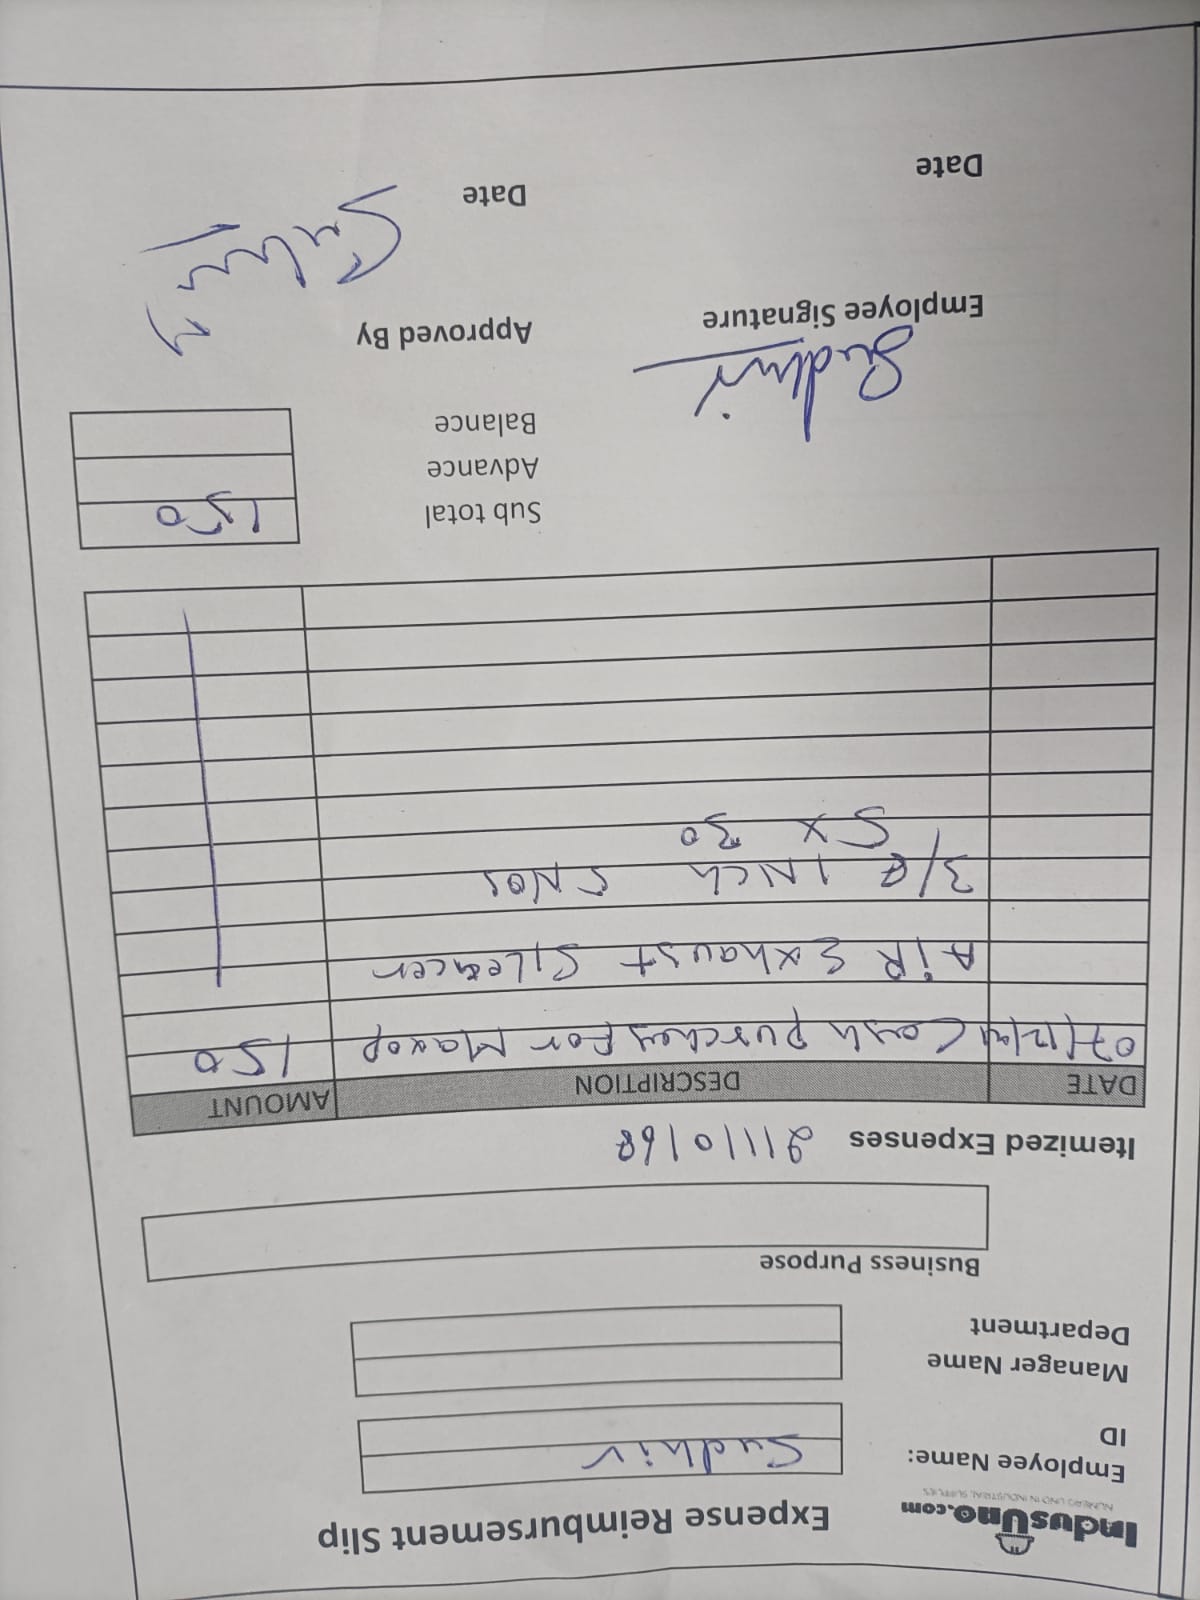 IndusUno.com
NUMERO UNO IN INDUSTRIAL SUPPLIES
Expense Reimbursement Slip
Employee Name: Sudhir
ID
Manager Name
Department
Business Purpose
Itemized Expenses 21110168
DATE DESCRIPTION AMOUNT
07/12/21 Cash purches For Maxop 150
AiR Exhaust SiLencer
3/8 INCh 5 NOS
5 x 30
Sub total 150
Advance
Balance
Sudhir
Employee Signature
Approved By
Date
Date